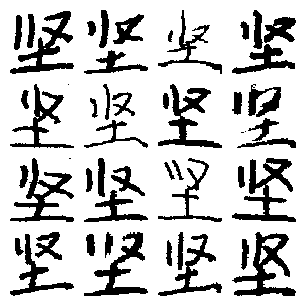 坚坚坚坚
坚坚坚坚
坚坚坚坚
坚坚坚坚